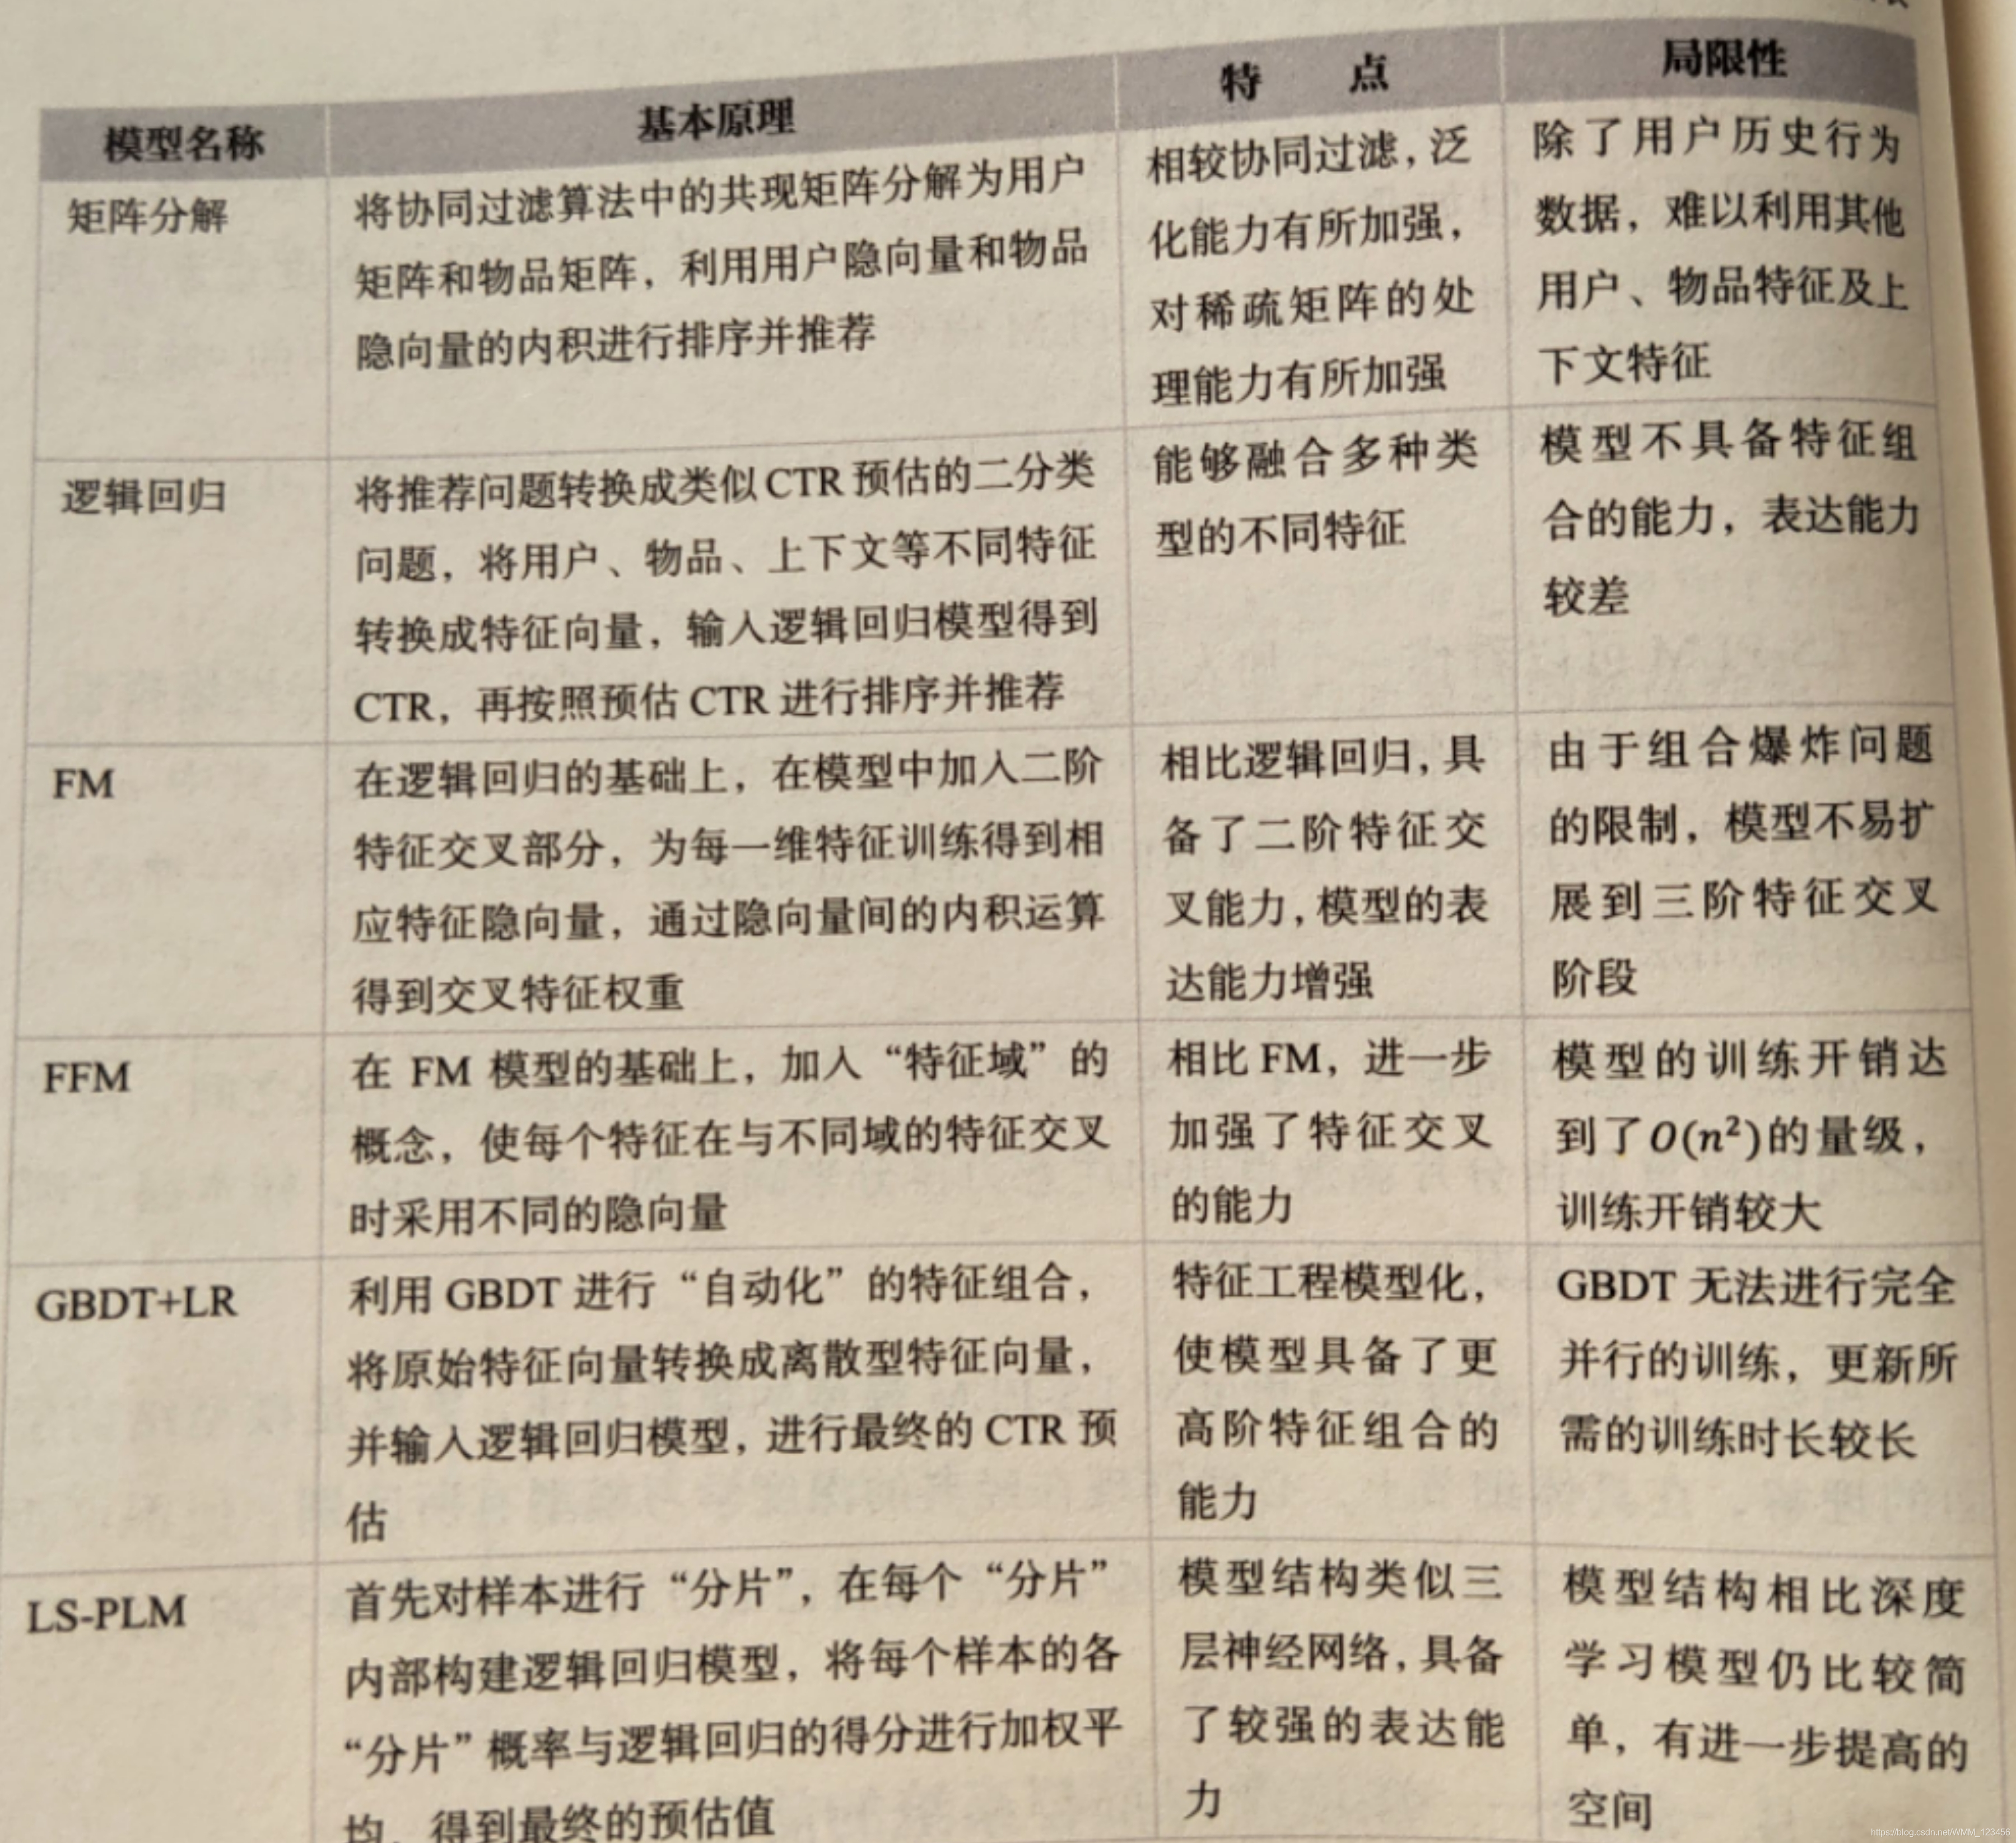 模型名称
基本原理
特 点
局限性
矩阵分解
将协同过滤算法中的共现矩阵分解为用户
矩阵和物品矩阵，利用用户隐向量和物品
隐向量的内积进行排序并推荐
相较协同过滤，泛
化能力有所加强，
对稀疏矩阵的处
理能力有所加强
除了用户历史行为
数据，难以利用其他
用户、物品特征及上
下文特征
逻辑回归
将推荐问题转换成类似CTR预估的二分类
问题，将用户、物品、上下文等不同特征
转换成特征向量，输入逻辑回归模型得到
CTR，再按照预估CTR进行排序并推荐
能够融合多种类
型的不同特征
模型不具备特征组
合的能力，表达能力
较差
FM
在逻辑回归的基础上，在模型中加入二阶
特征交叉部分，为每一维特征训练得到相
应特征隐向量，通过隐向量间的内积运算
得到交叉特征权重
相比逻辑回归，具
备了二阶特征交
叉能力，模型的表
达能力增强
由于组合爆炸问题
的限制，模型不易扩
展到三阶特征交叉
阶段
FFM
在 FM 模型的基础上，加入“特征域”的
概念，使每个特征在与不同域的特征交叉
时采用不同的隐向量
相比 FM，进一步
加强了特征交叉
的能力
模型的训练开销达
到了O(n²)的量级，
训练开销较大
GBDT+LR
利用 GBDT 进行“自动化”的特征组合，
将原始特征向量转换成离散型特征向量，
并输入逻辑回归模型，进行最终的 CTR 预
估
特征工程模型化，
使模型具备了更
高阶特征组合的
能力
GBDT 无法进行完全
并行的训练，更新所
需的训练时长较长
LS-PLM
首先对样本进行“分片”，在每个“分片”
内部构建逻辑回归模型，将每个样本的各
“分片”概率与逻辑回归的得分进行加权平
均，得到最终的预估值
模型结构类似三
层神经网络，具备
了较强的表达能
力
模型结构相比深度
学习模型仍比较简
单，有进一步提高的
空间
https://blog.csdn.net/WMM_123456